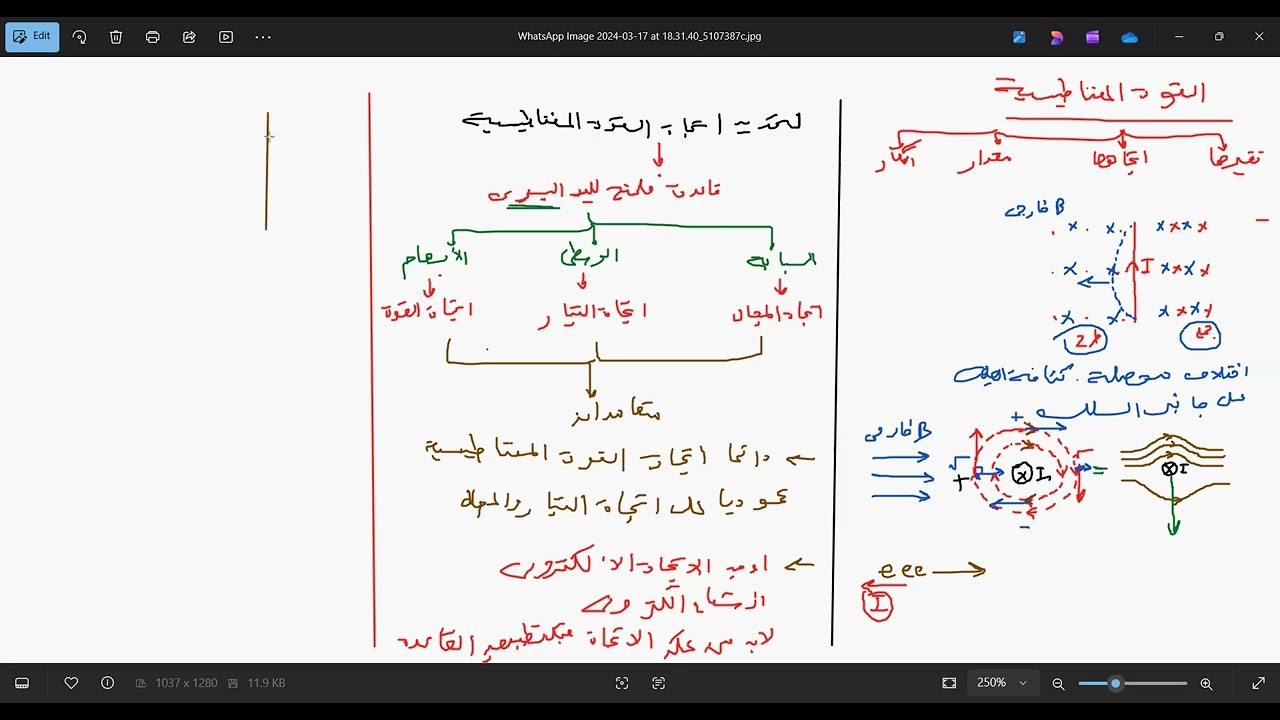 Edit
WhatsApp Image 2024-03-17 at 18.31.40_5107387c.jpg
القوة المغناطيسية
تفسيرها اتجاهها مقدار أفكار
B خارجي
I
اختلاف محصلة كثافة الفيض
على جانبي السلك
B خارجي
+
+
-
I
=
I
e e e
I
لتحديد اتجاه القوة المغناطيسية
قاعدة فلمنج لليد اليسرى
السبابة الوسطى الأبهام
اتجاة المجال اتجاة التيار اتجاة القوة
متعامدان
دائما اتجاة القوة المغناطيسية
عموديا على اتجاة التيار والمجال
الاتجاة الإلكترونى
لابد من عكس الاتجاة القاعدة
1037 x 1280
11.9 KB
250%